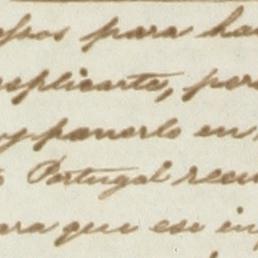 esos para ha
esplicarte, per
y ponerlo en
Portugal recu
ara que ese in